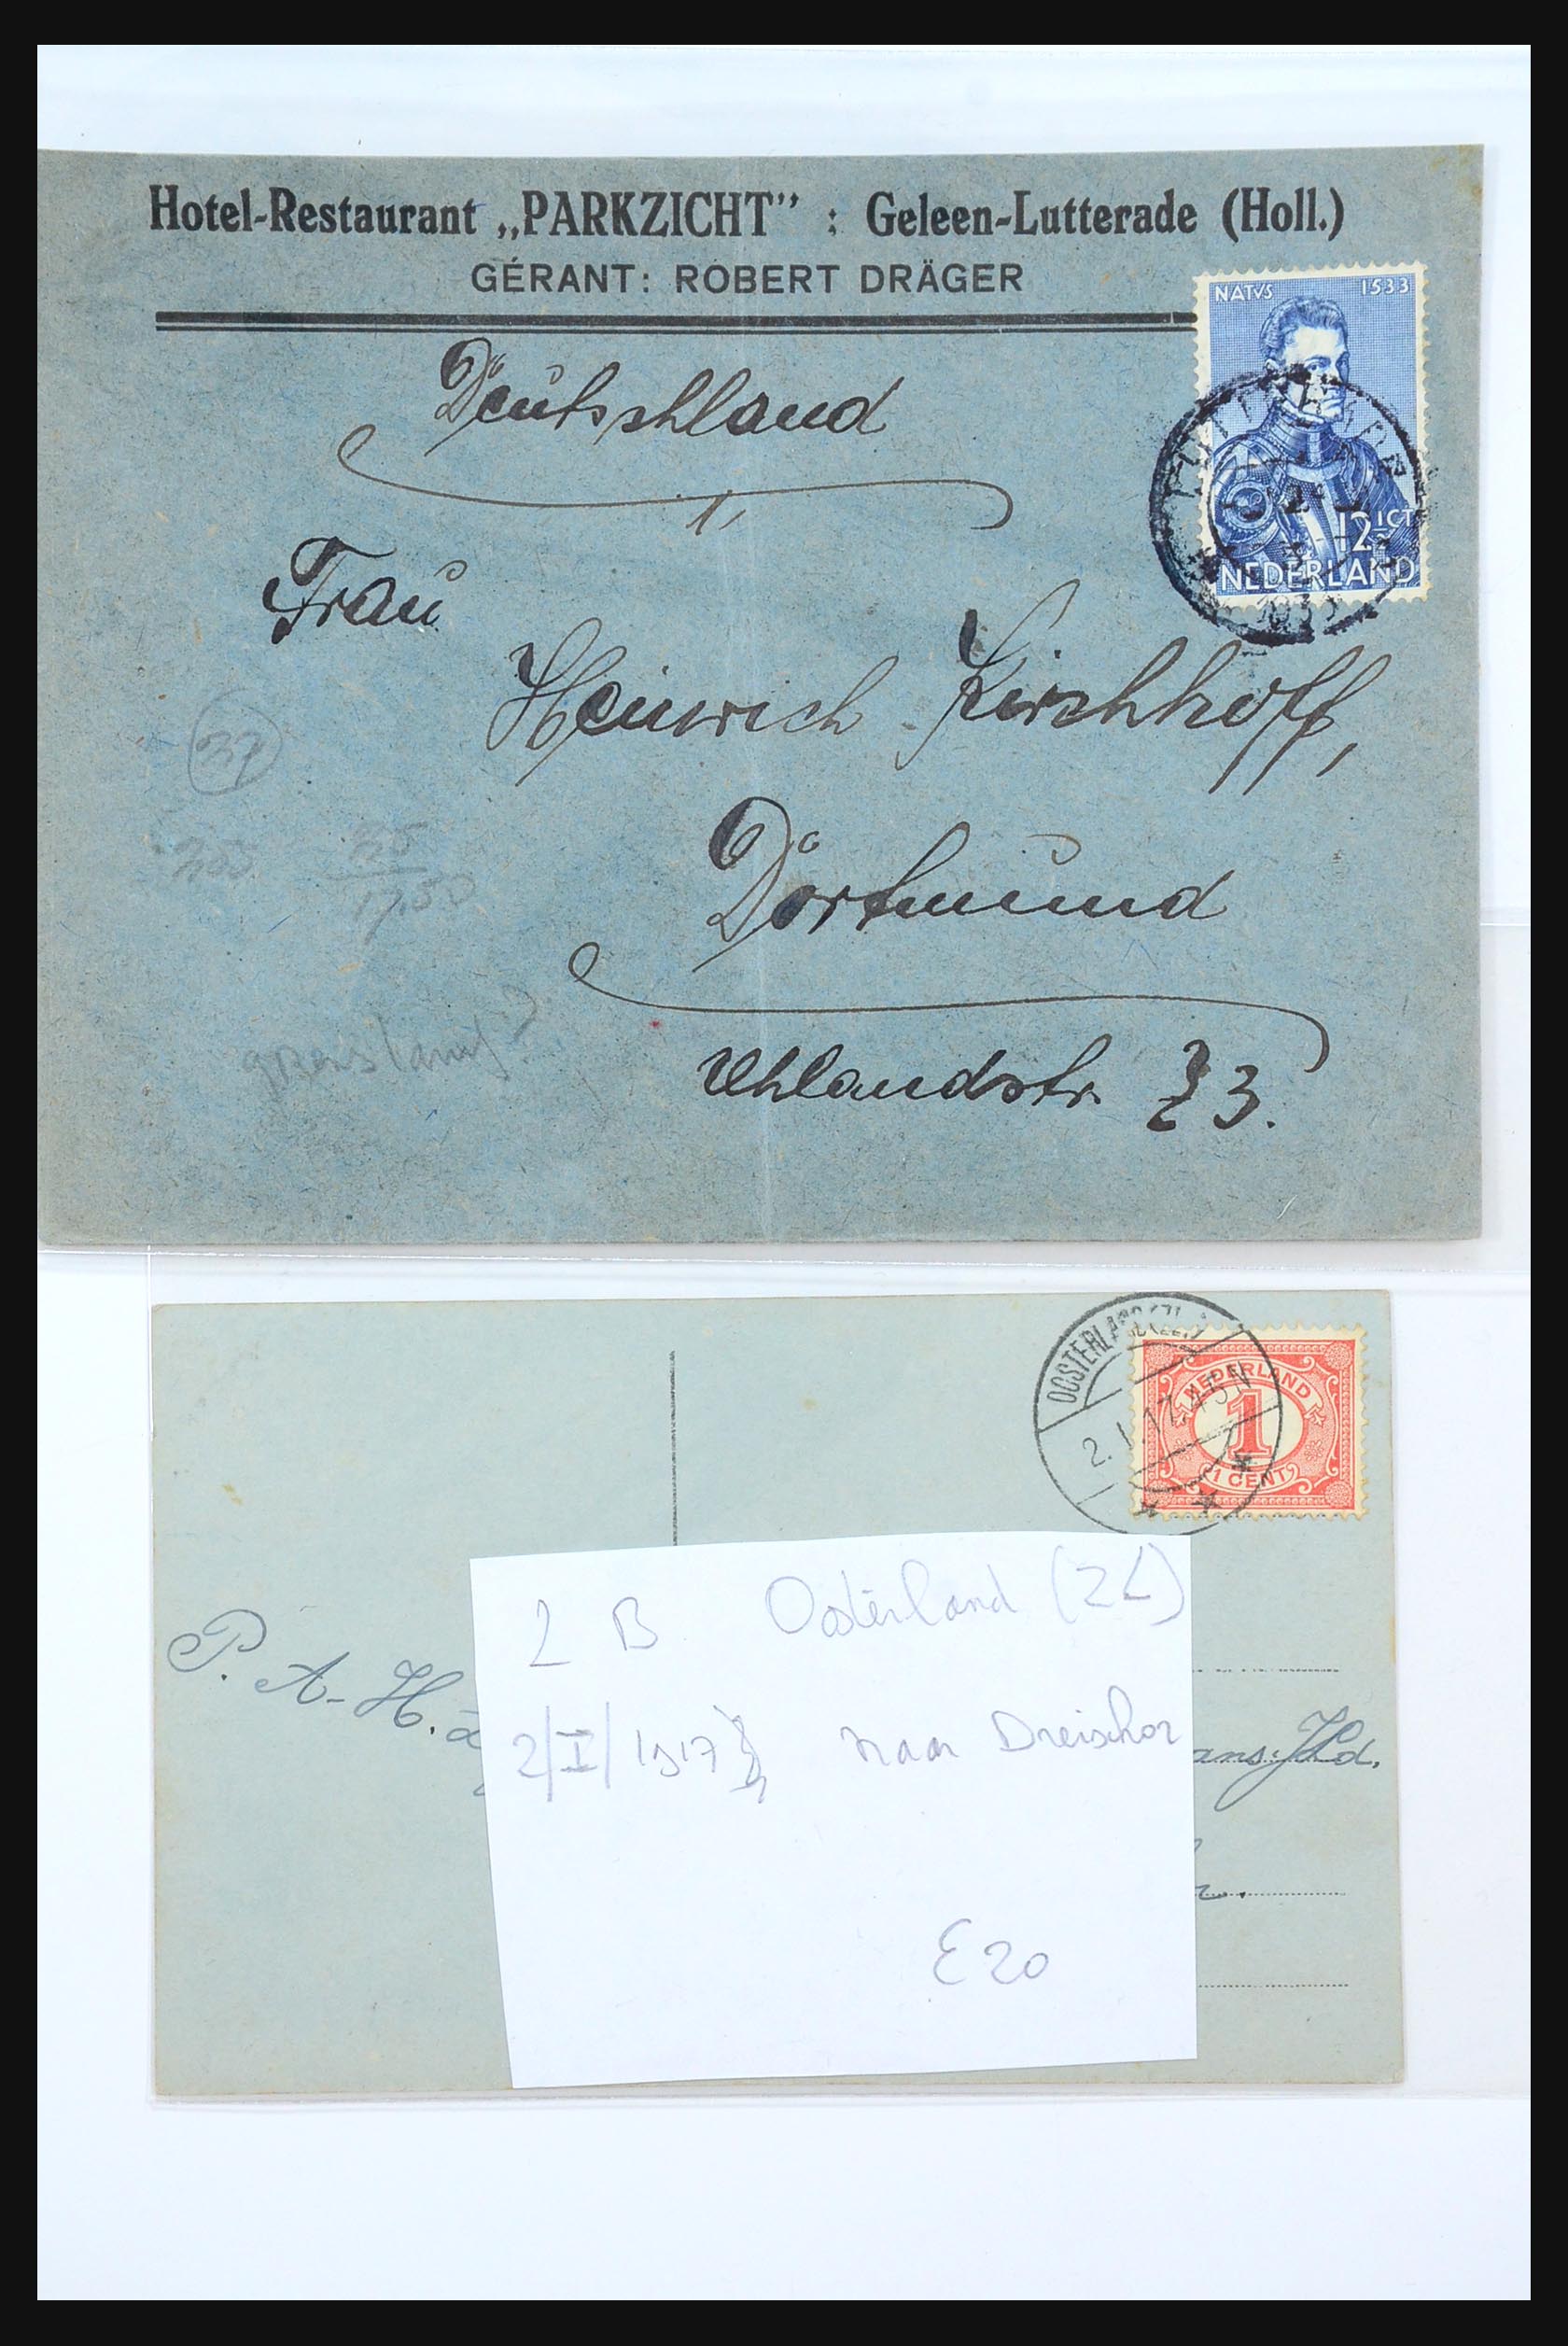 Hotel-Restaurant „PARKZICHT” : Geleen-Lutterade (Holl.)
GÉRANT: ROBERT DRÄGER
NATVS 1533
12½ CT
NEDERLAND
1933
Deutschland
Frau
Heinrich Kirchhoff,
Dortmund
Uhlandstr. 73.
37
17,50
OOSTERLAND (ZL.)
2.1.17. 4-5 N
NEDERLAND
1
1 CENT
P. A. H.
ans. Hd.
L B Oosterland (ZL)
2/I/1917 naar Dreischor
€ 20